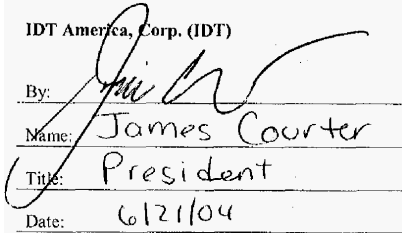 IDT America, Corp. (IDT)
By:
Name: James Courter
Title: President
Date: 6/21/04